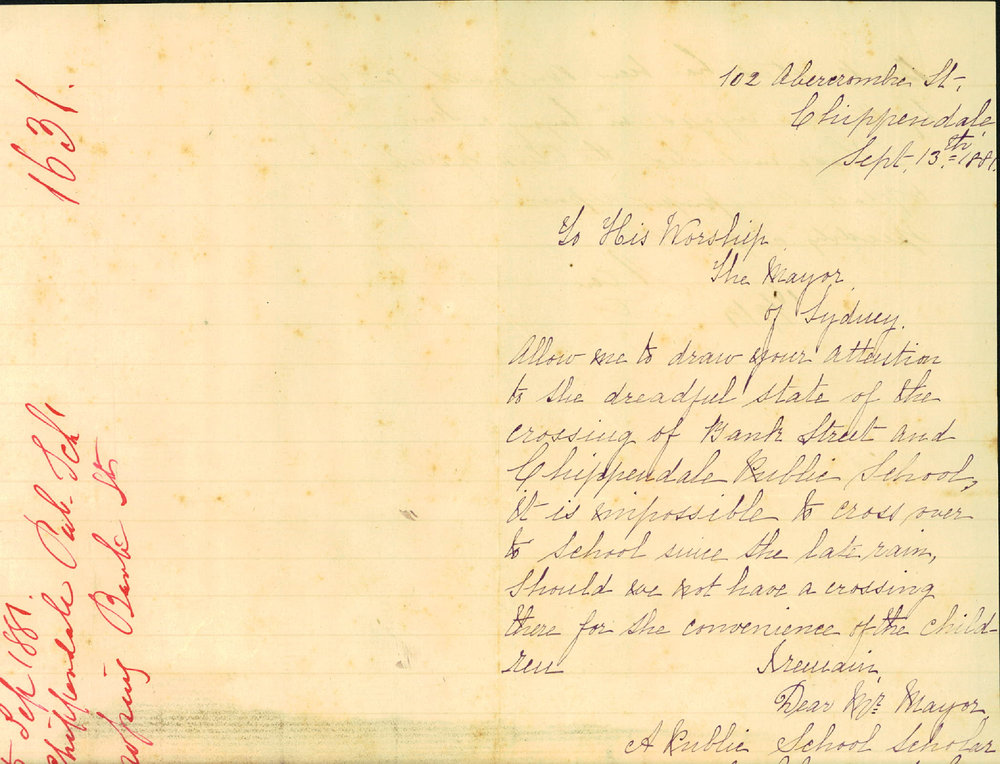 102 Abercrombie St.
Chippendale,
Sept. 13th. 1881.
To His Worship
The Mayor
of Sydney.
Allow me to draw your attention
to the dreadful state of the
crossing of Bank Street and
Chippendale Public School,
it is impossible to cross over
to School since the late rain,
Should we not have a crossing
there for the convenience of the child-
ren I remain,
Dear Mr. Mayor
A Public School Scholar
1631.
Sep 1881.
Chippendale Pub. Schl
Bank St